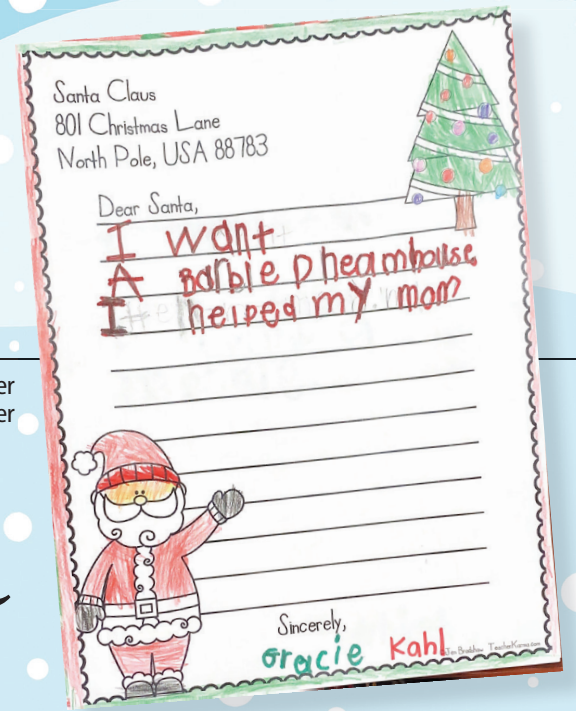 Santa Claus
801 Christmas Lane
North Pole, USA 88783
Dear Santa,
I want
A Barbie Dheamhouse
I helped my mom
er
er
Sincerely,
Gracie Kahl
Jen Bradshaw TeacherKarma.com